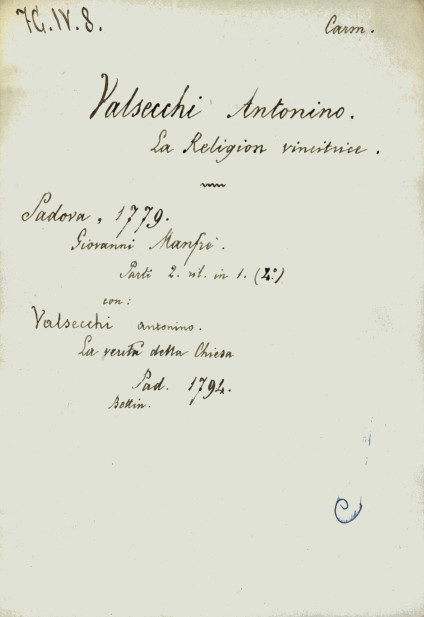 7G.IV.8.
Carm.
Valsecchi Antonino.
La Religion vincitrice.
Padova, 1779.
Giovanni Manfrè.
Parti 2. ril. in 1. (4°)
con:
Valsecchi antonino.
La verità della Chiesa
Pad. 1794.
Bettin.
C